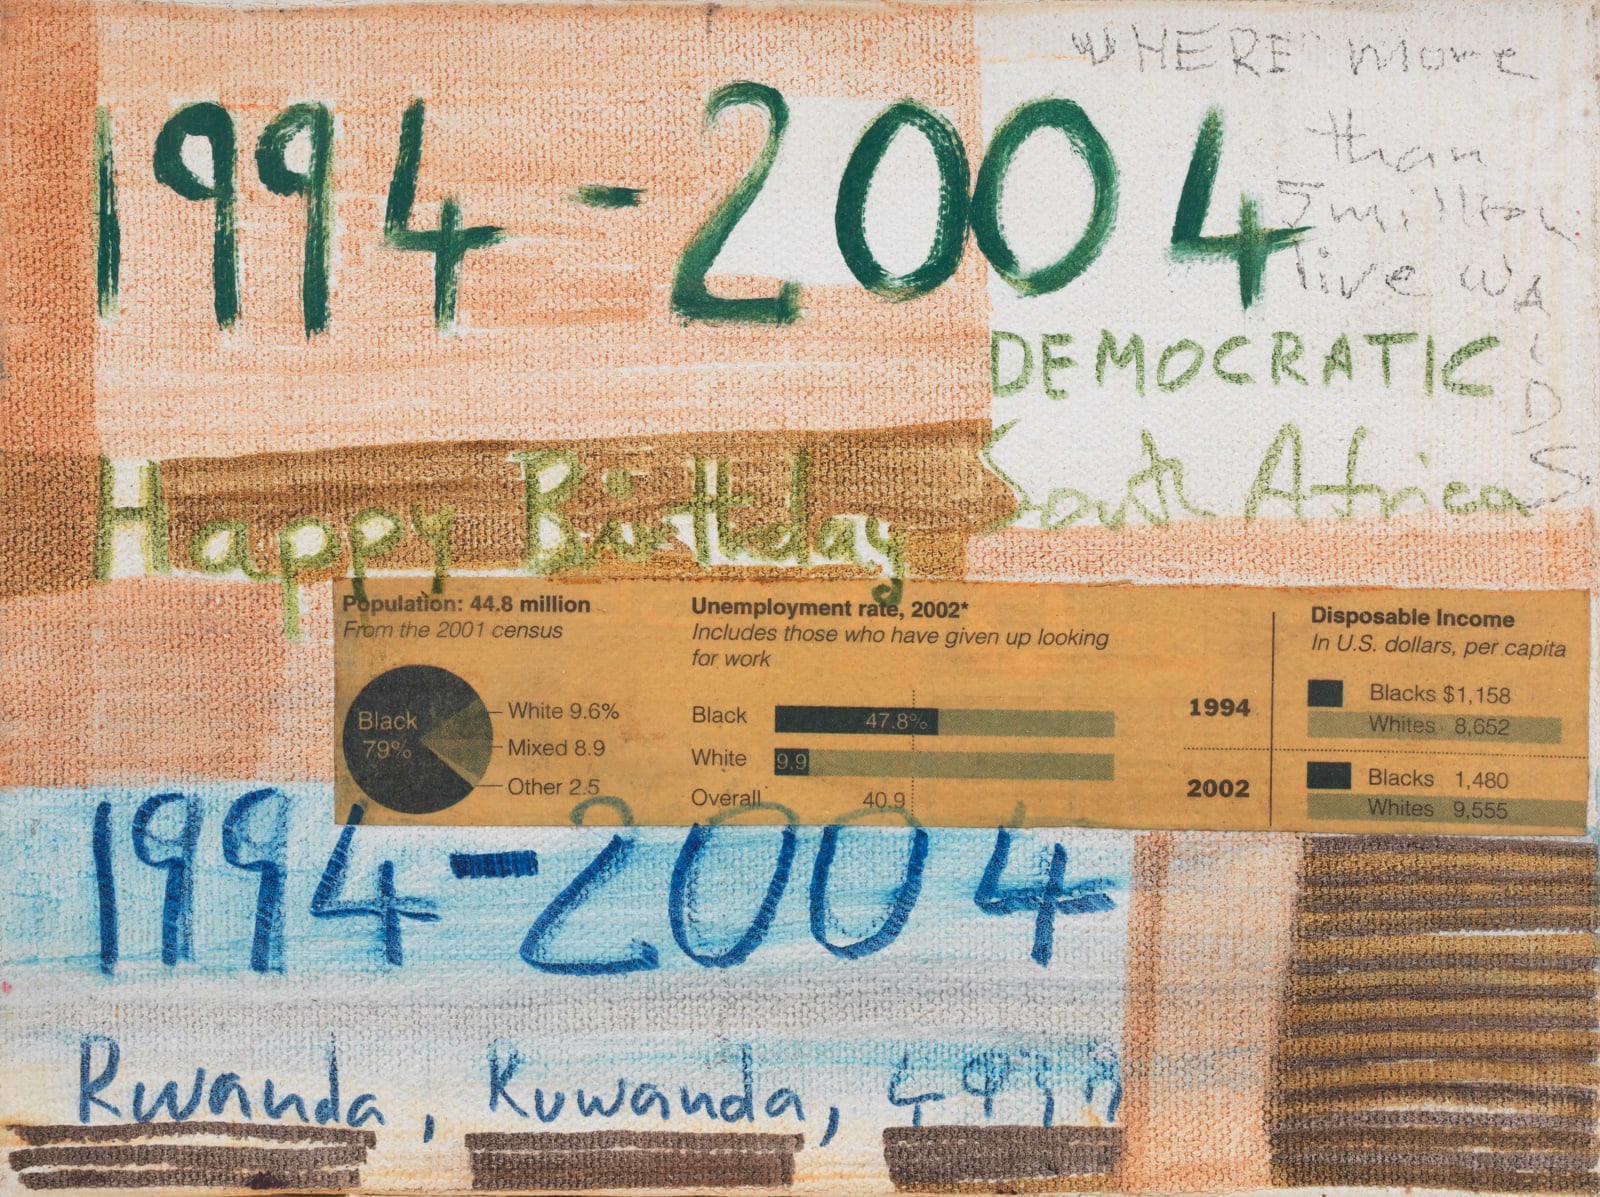 WHERE more
than
5 million
live W AIDS
1994-2004
DEMOCRATIC
Happy Birthday South Africa
Population: 44.8 million
From the 2001 census
Black
79%
White 9.6%
Mixed 8.9
Other 2.5
Unemployment rate, 2002*
Includes those who have given up looking
for work
Black 47.8%
White 9.9
Overall 40.9
1994
2002
Disposable Income
In U.S. dollars, per capita
Blacks $1,158
Whites 8,652
Blacks 1,480
Whites 9,555
1994-2004
Rwanda, Kuwanda,